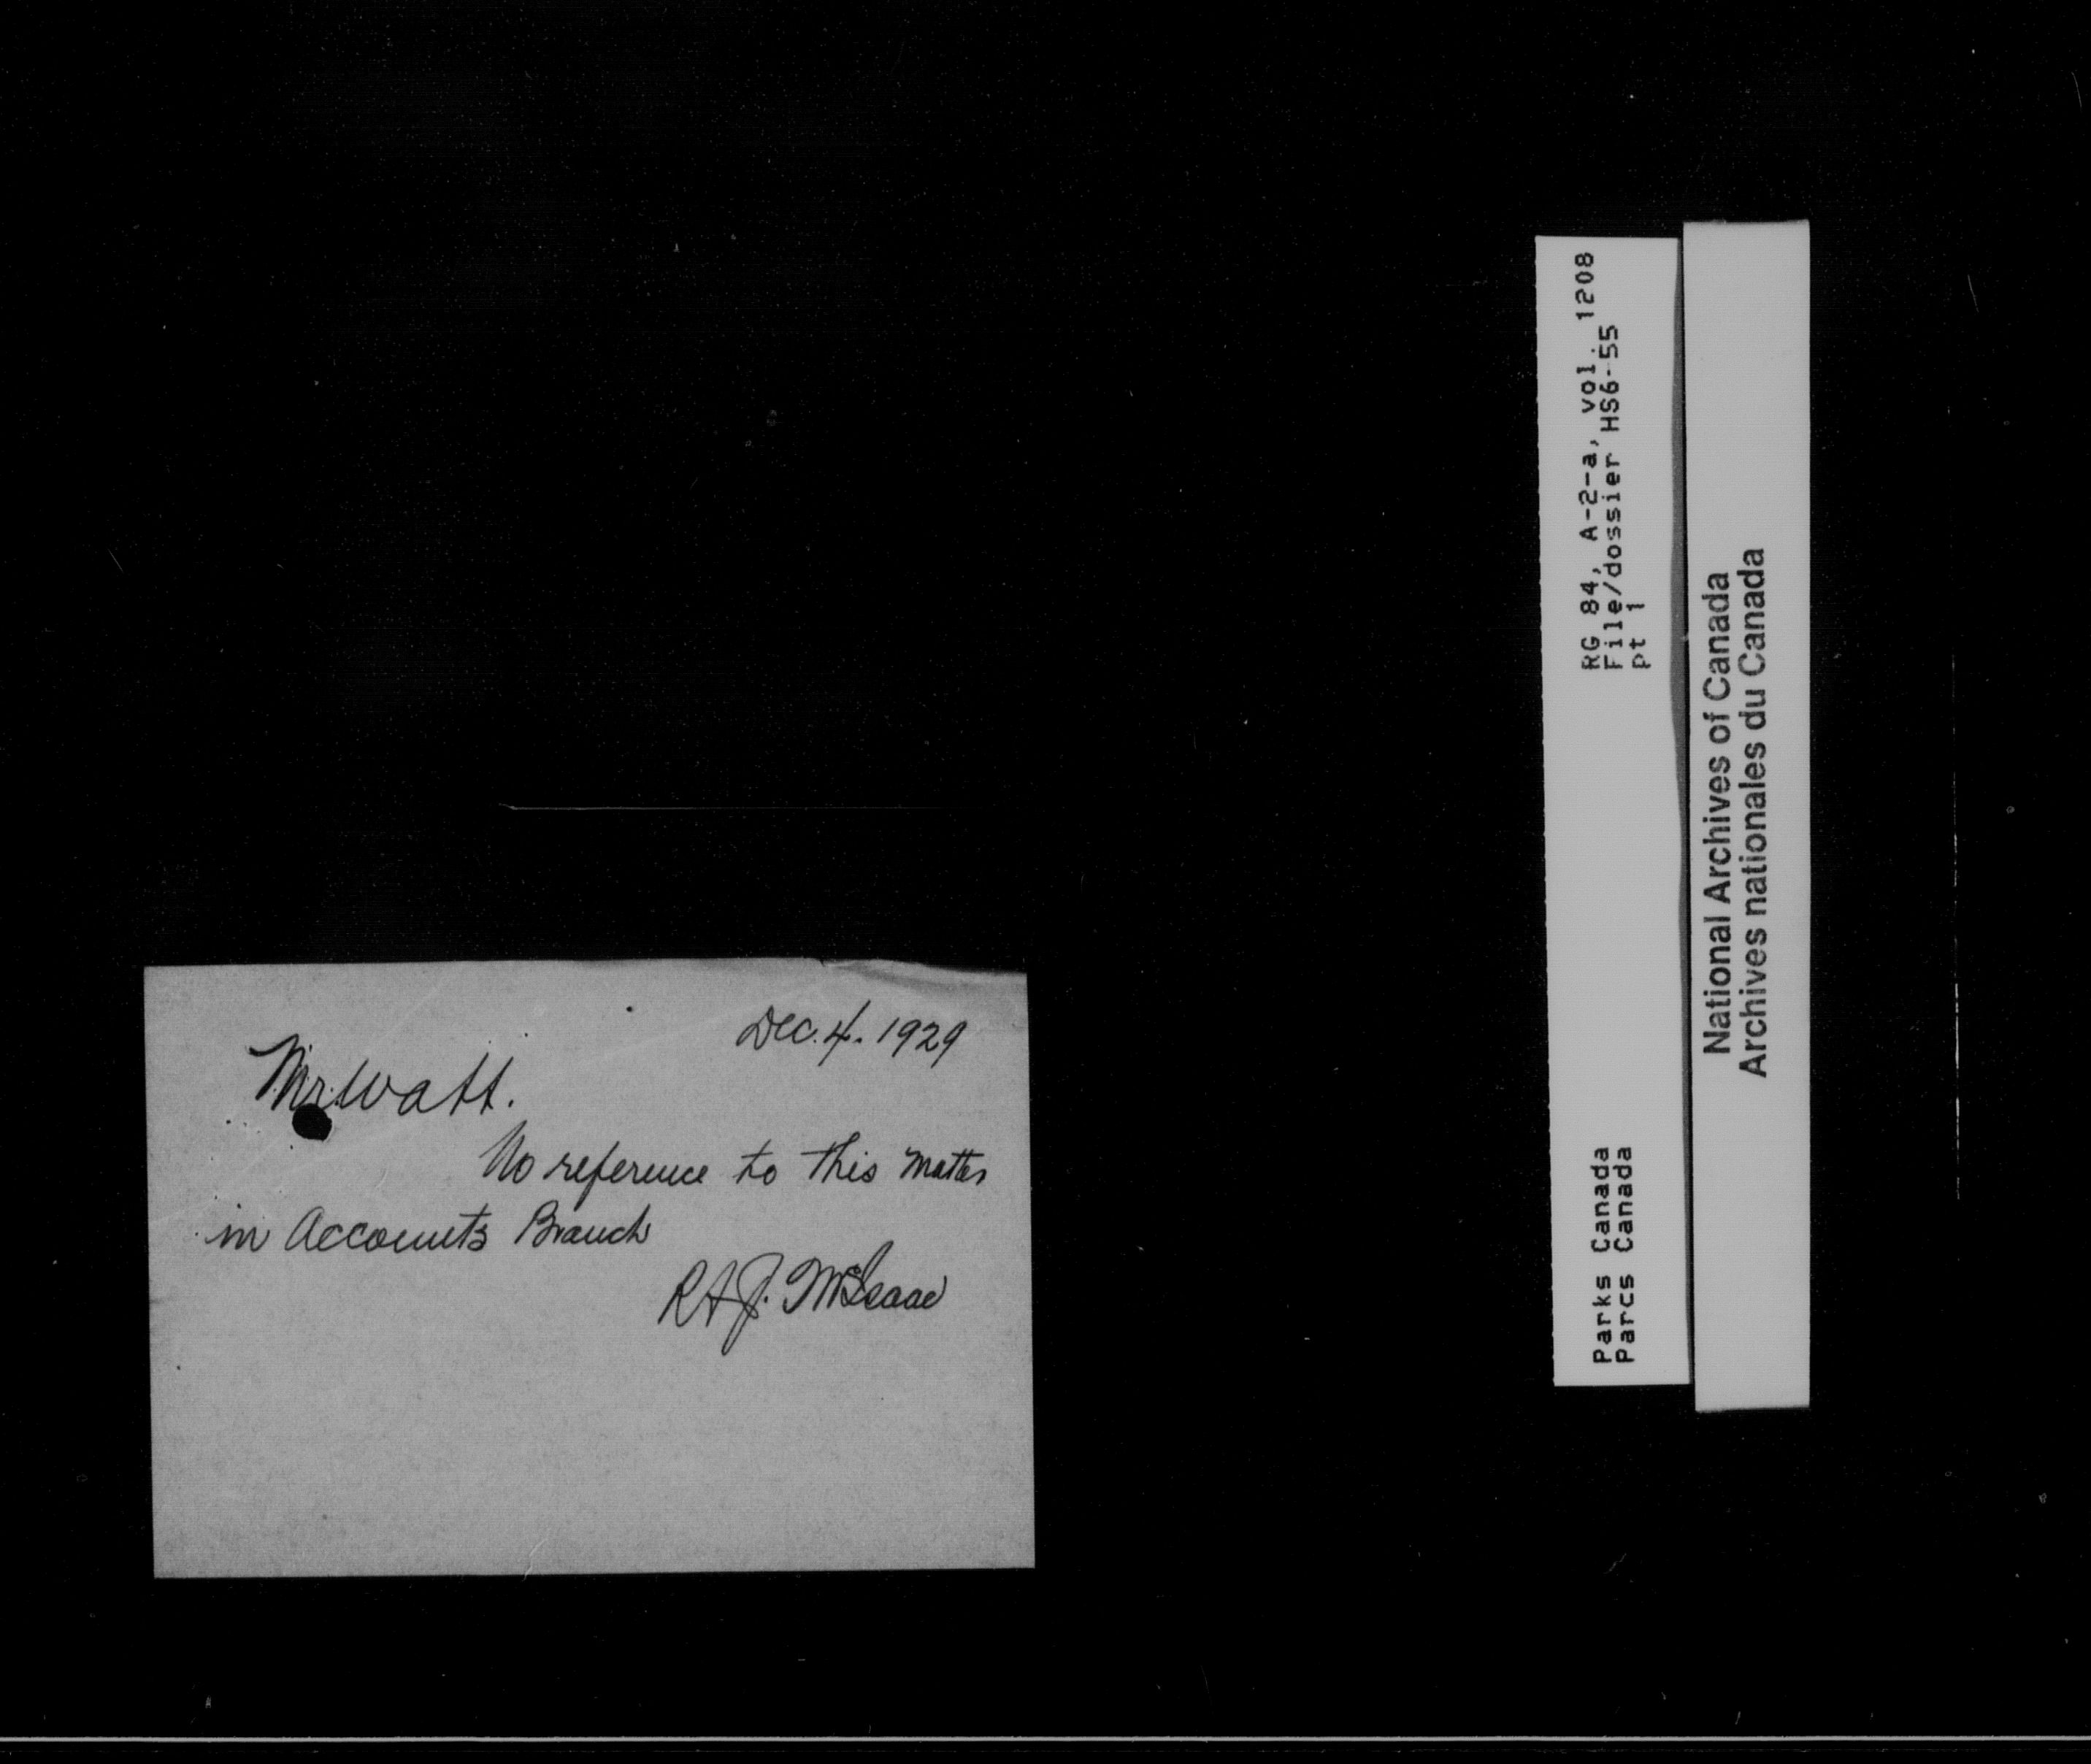 Dec. 4. 1929
Mr. Watt.
No reference to this matter
in Accounts Branch
R A J. McIsaac
Parks Canada
Parcs Canada
RG 84, A-2-a, vol. 1208
File/dossier HS6-55
pt 1
National Archives of Canada
Archives nationales du Canada